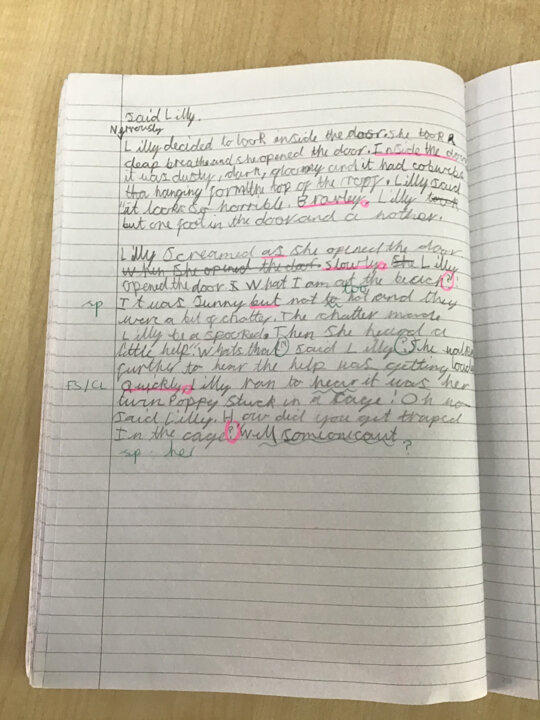 said Lilly.
Nervously
Lilly decided to look inside the door. she took a
deap breathe and she opened the door. Inside the door
it was dusty, dark, gloomy and it had cobwebs
tha hanging form the top of the roof. Lilly said
"it looks so horrible. Bravley, Lilly took
but one foot in the door and a nother.
Lilly screamed as she opened the door
When She opened the door slowly, She Lilly
opened the door. What I am at the beach?
sp It was Sunny but not to too hot and they
were a bit of chatter. The chatter made
Lilly be a spooked. Then she heared a
little help! Whats that? said Lilly. She walked
further to hear the help was getting louder
FS/CL Quickly, Lilly ran to hear it was her
twin Poppy stuck in a cage! Oh no
said Lilly. How did you get traped
In the cage? Well
sp her ?